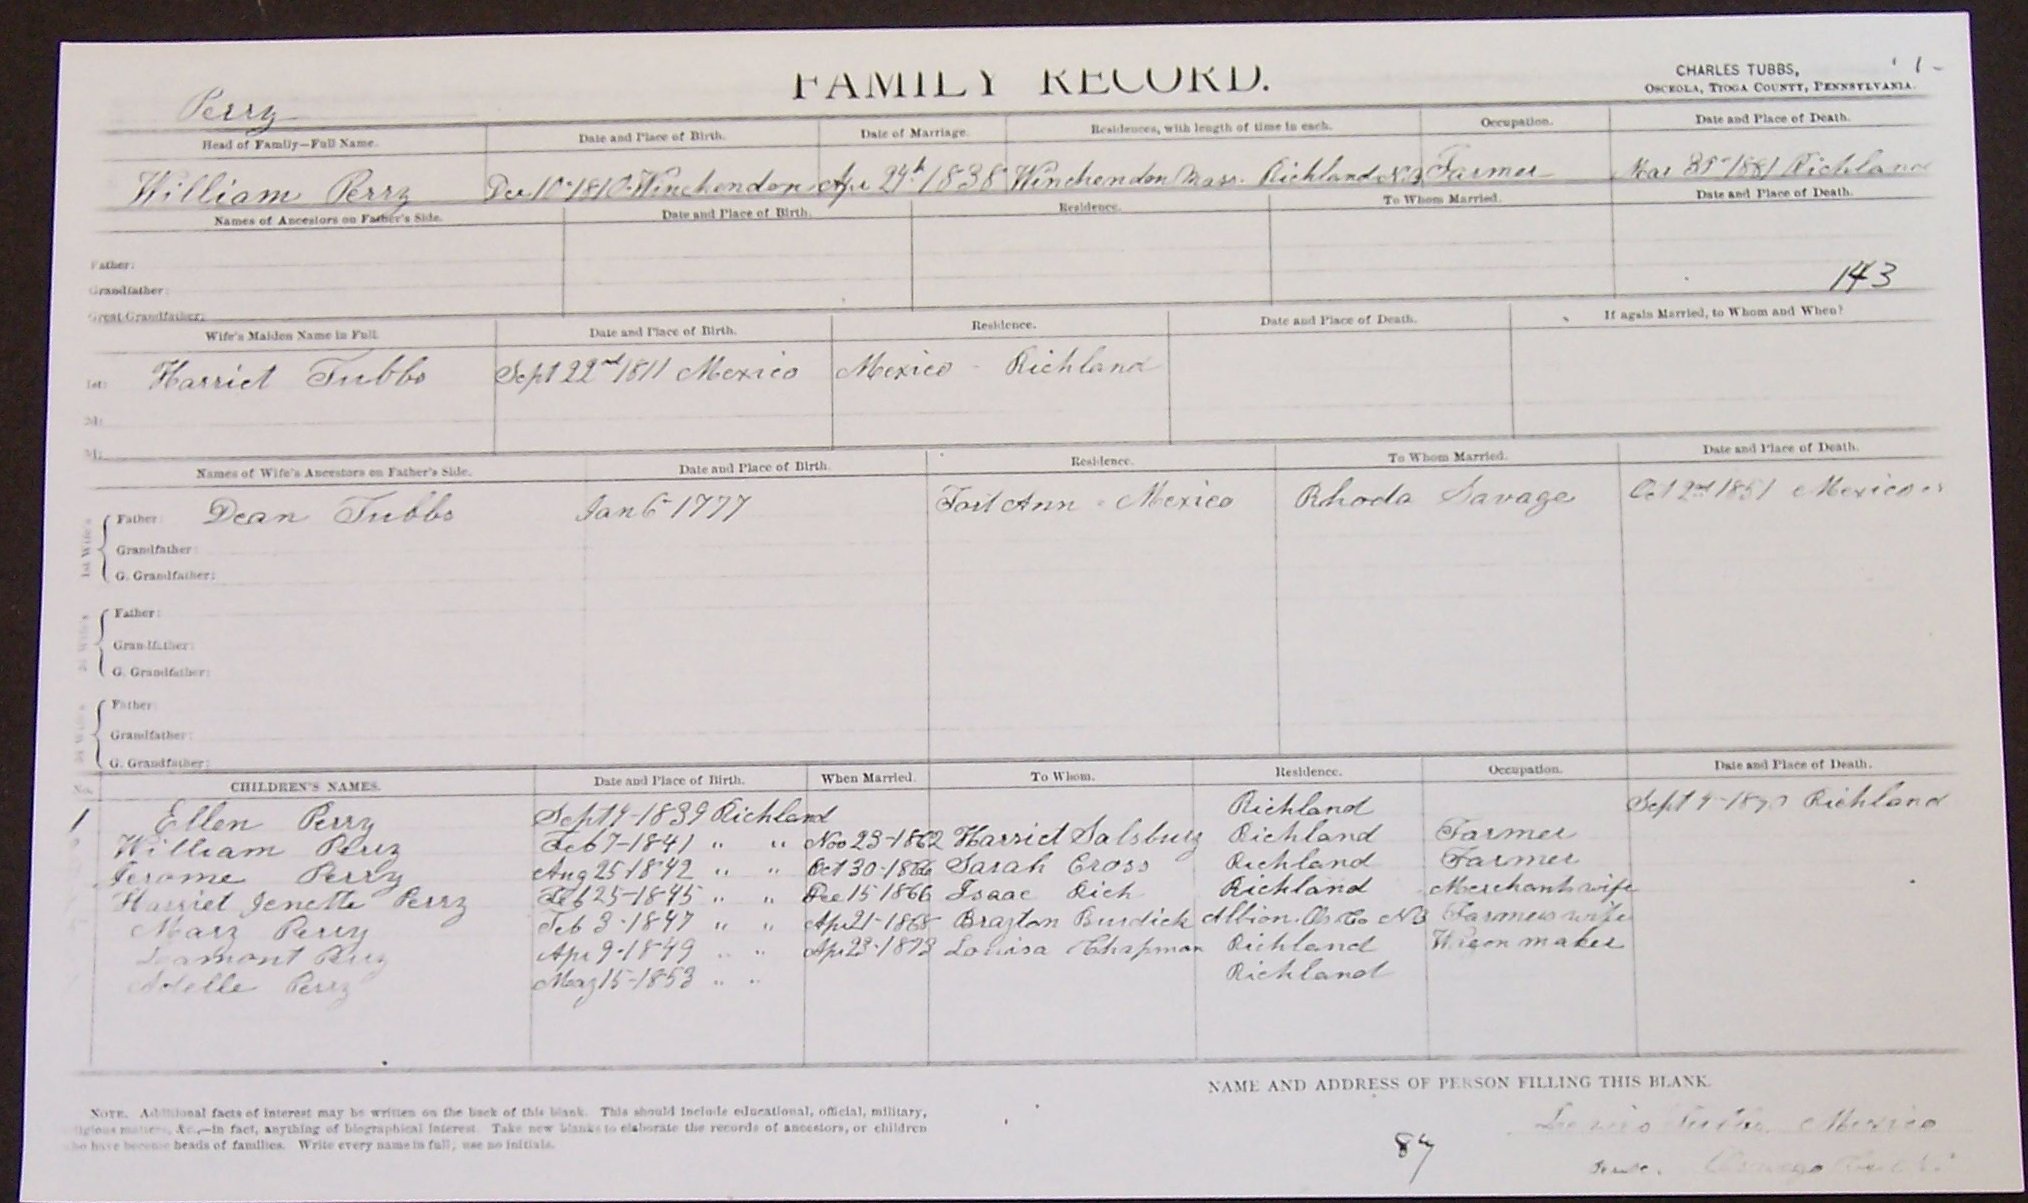 FAMILY RECORD.
CHARLES TUBBS,
OSCEOLA, TIOGA COUNTY, PENNSYLVANIA.
Perry
Head of Family—Full Name. Date and Place of Birth. Date of Marriage. Residences, with length of time in each. Occupation. Date and Place of Death.
William Perry Dec 10-1810 Winchendon Apr 24th 1838 Winchendon Mass. Richland N.Y. Farmer Mar 1881 Richland
Names of Ancestors on Father's Side. Date and Place of Birth. Residence. To Whom Married. Date and Place of Death.
Father:
Grandfather: 143
Great-Grandfather:
Wife's Maiden Name in Full. Date and Place of Birth. Residence. Date and Place of Death. If again Married, to Whom and When?
1st: Harriet Tubbs Sept 22nd 1811 Mexico Mexico - Richland
2d:
3d:
Names of Wife's Ancestors on Father's Side. Date and Place of Birth. Residence. To Whom Married. Date and Place of Death.
1st Wife's Father: Dean Tubbs Jan 6-1777 Fort Ann - Mexico Rhoda Savage Oct 2nd 1851 Mexico
Grandfather:
G. Grandfather:
2d Wife's Father:
Grandfather:
G. Grandfather:
3d Wife's Father:
Grandfather:
G. Grandfather:
No. CHILDREN'S NAMES. Date and Place of Birth. When Married. To Whom. Residence. Occupation. Date and Place of Death.
1 Ellen Perry Sept 4-1839 Richland Richland Sept Richland
William Perry Feb 7-1841 " " Nov 23-1862 Harriet Salsbury Richland Farmer
Jerome Perry Aug 25-1842 " " Oct 30-1866 Sarah Cross Richland Farmer
Harriet Jenette Perry Feb 25-1845 " " Dec 15 1866 Isaac Rich Richland Merchants wife
Mary Perry Feb 3-1847 " " Apr 21-1868 Brayton Burdick Albion. Os Co NY Farmers wife
Lamont Perry Apr 9-1849 " " Apr 23-1873 Louisa Chapman Richland Wagon maker
Adelle Perry May 15-1853 " " Richland
NAME AND ADDRESS OF PERSON FILLING THIS BLANK.
NOTE. Additional facts of interest may be written on the back of this blank. This should include educational, official, military,
religious matters, &c.,—in fact, anything of biographical interest. Take new blanks to elaborate the records of ancestors, or children
who have become heads of families. Write every name in full; use no initials.
Tubbs Mexico
87 Oswego